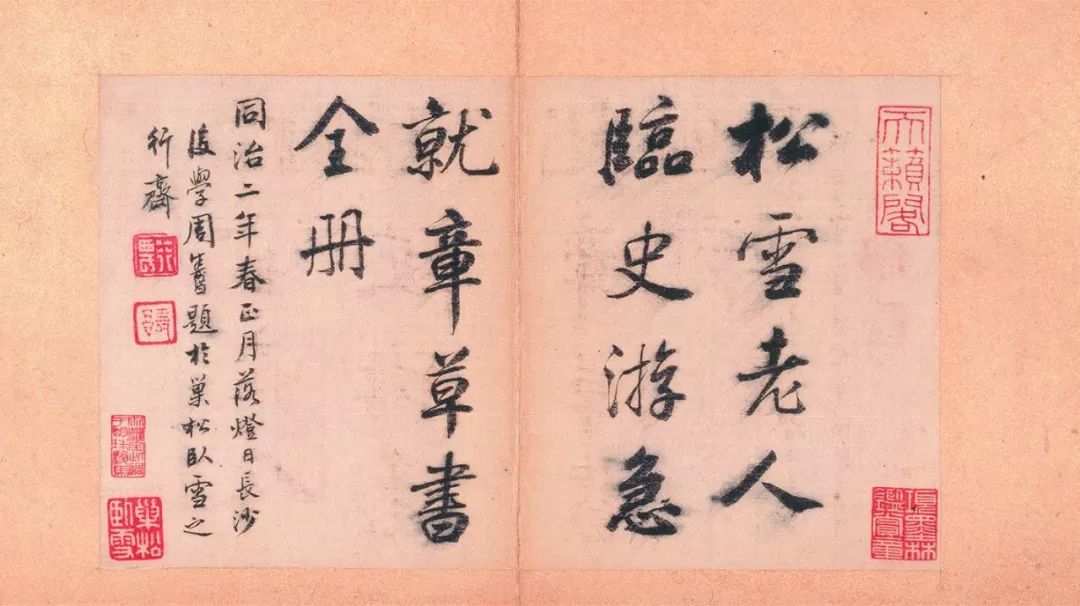 松雪老人
臨史游急
就章草書
全冊
同治二年春正月落燈日長沙
後學周壽題於巢松臥雪之
行齋
天籟閣
項墨林鑑賞章
巢松臥雪